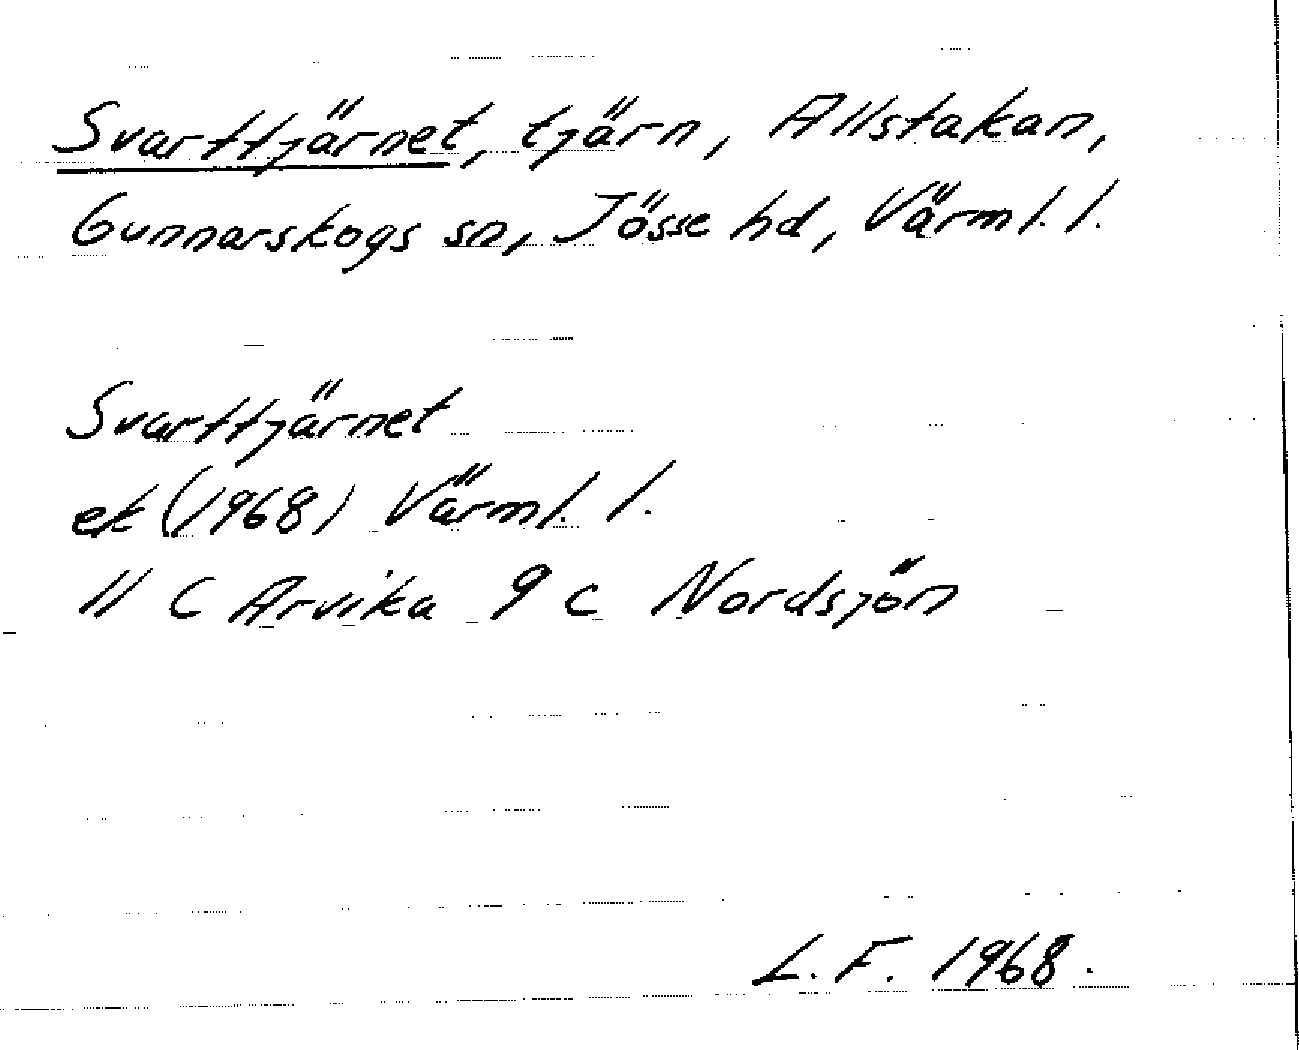 Svarttjärnet, tjärn, Allstakan,
Gunnarskogs sn, Jösse hd, Värml. l.
Svarttjärnet
ek (1968) Värml. l.
11 C Arvika 9 c Nordsjön
L. F. 1968.